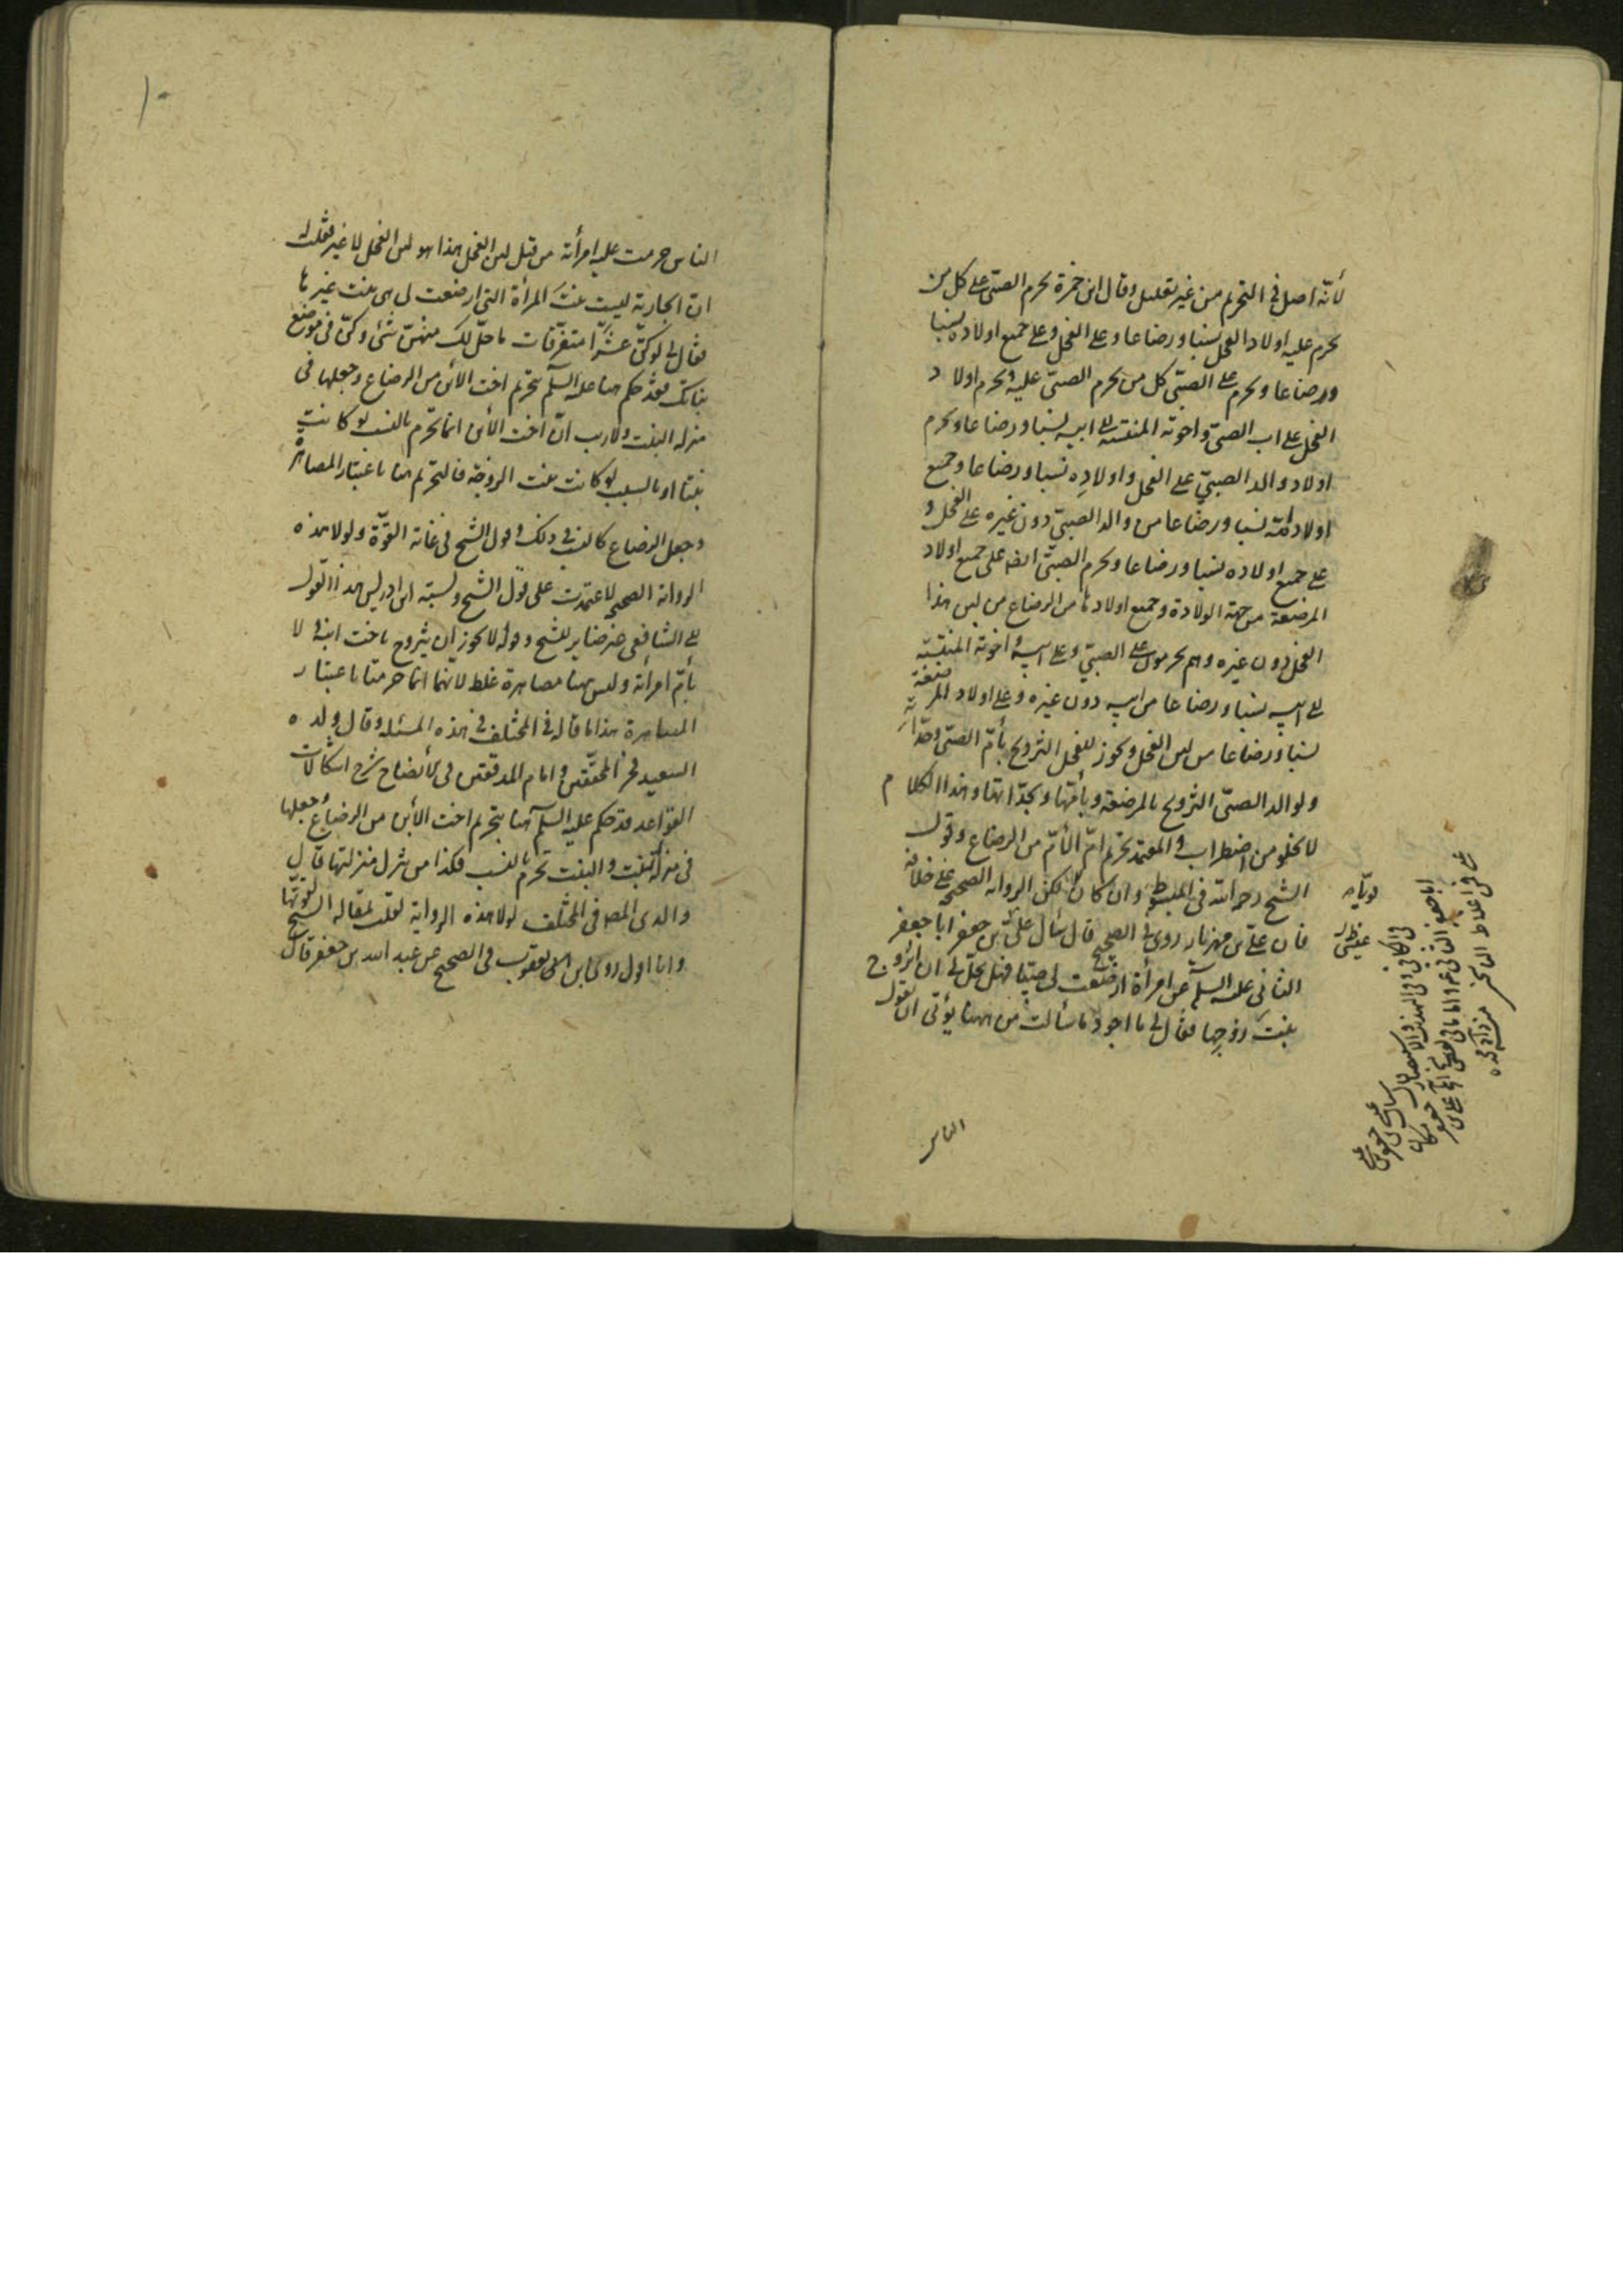 لأنّه اصل في التحريم من غير تعليل وقال ابن حمزة يحرم الصبيّ على كل من
يحرم عليه اولاد الفحل نسبا ورضاعا وعلى الفحل وعلى جميع اولاده نسبا
ورضاعا ويحرم على الصبيّ كل من يحرم الصبيّ عليه ويحرم اولاد
الفحل على اب الصبيّ واخوته المنتسبة الى ابيه نسبا ورضاعا ويحرم
اولاد والد الصبيّ على الفحل واولاده نسبا ورضاعا وجميع
اولاد امّه نسبا ورضاعا من والد الصبيّ دون غيره على الفحل و
على جميع اولاده نسبا ورضاعا ويحرم الصبيّ ايضا على جميع اولاد
المرضعة من جهة الولادة وجميع اولادها من الرضاع من لبن هذا
الفحل دون غيره وهم يحرمون على الصبيّ وعلى ابيه واخوته المنتسبة
الى ابيه نسبا ورضاعا من ابيه دون غيره وعلى اولاد المرضعة
نسبا ورضاعا من لبن الفحل ويجوز للفحل التزويج بأمّ الصبيّ وجدّاته
ولوالد الصبيّ التزويج بالمرضعة وبأمّها وبجدّاتها وهذا الكلام
لا يخلو من اضطراب والمعتمد تحريم امّ الأمّ من الرضاع وقول
الشيخ رحمه الله في المبسوط وان كان قويّا لكن الرواية الصحيحة على خلافه
فان عليّ بن مهزيار روى في الصحيح قال سأل عليّ بن جعفر ابا جعفر
الثاني عليه السلم عن امرأة ارضعت لي صبيّا فهل يحلّ لي ان اتزوج
بنت زوجها فقال لي ما اجود ما سألت من ههنا يؤتى ان تقول
الناس
الناس حرمت عليه امرأته من قبل لبن الفحل هذا هو لبن الفحل لا غير فقلت له
انّ الجارية ليست بنت المرأة التي ارضعت لي هي بنت غيرها
فقال لي لو كنّ عشرا متفرّقات ما حلّ لك منهنّ شئ وكنّ في موضع
بناتك فقد حكم هنا عليه السلم بتحريم اخت الابن من الرضاع وجعلها في
منزلة البنت ولا ريب انّ اخت الابن انما تحرم بالنسب لو كانت
بنتا او بالسبب لو كانت بنت الزوجة فالتحريم هنا باعتبار المصاهرة
وجعل الرضاع كالنسب في ذلك وقول الشيخ في غاية القوّة ولولا هذه
الرواية الصحيحة لاعتمدت على قول الشيخ ونسبة ابن ادريس هذا القول
الى الشافعي غير ضاير للشيخ وقوله لا يجوز ان يتزوج باخت ابنه ولا
بأمّ امرأته وليس هنا مصاهرة غلط لانهما انما حرمتا باعتبار
المصاهرة هذا ما قاله في المختلف في هذه المسئلة وقال ولده
السعيد فخر المحققين وامام المدققين في الأيضاح شرح اشكالات
القواعد قد حكم عليه السلم هنا بتحريم اخت الأبن من الرضاع وجعلها
في منزلة البنت والبنت تحرم بالنسب فكذا من ينزل منزلتها قال
والدي المص في المختلف لولا هذه الرواية لقلت بمقالة الشيخ لقوّتها
وانا اقول روى ابن يعقوب في الصحيح عن عبد الله بن جعفر قال
١٠